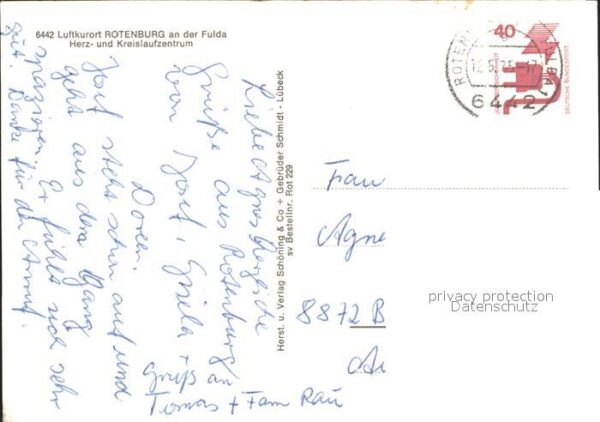 6442 Luftkurort ROTENBURG an der Fulda
Herz- und Kreislaufzentrum
Liebe Agnes Herzliche
Grüße aus Rotenburg
von Josef, Gisela +
Doreen.
Josef steht schon auf und
geht auf dem Gang
spazieren. Er fühlt sich sehr
gut. Danke für den Anruf.
Gruß an
Tomas + Fam Rau
Herst. u. Verlag Schöning & Co + Gebrüder Schmidt - Lübeck
sv Bestellnr. Rot 229
ROTEN
6442
40
DEUTSCHE BUNDESPOST
Frau
Agne
8872 B
privacy protection
Datenschutz